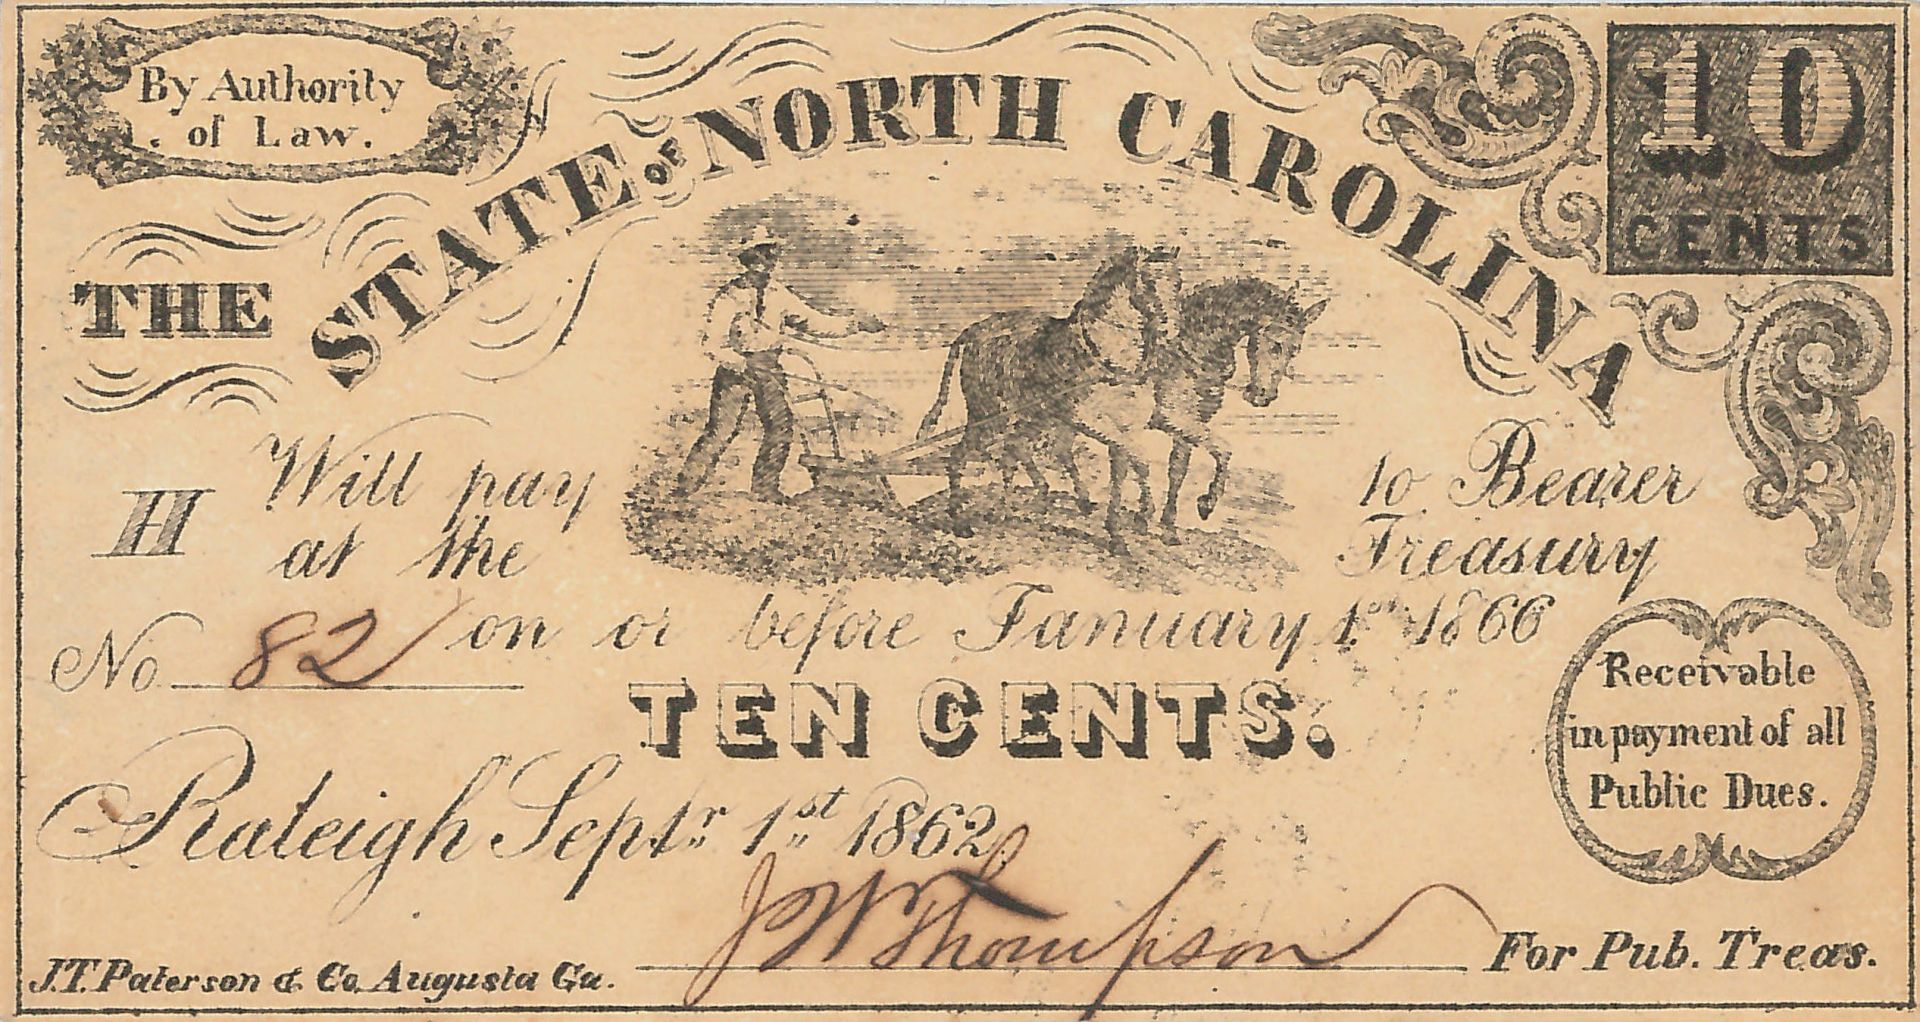 By Authority
of Law.
10
CENTS
THE STATE OF NORTH CAROLINA
H Will pay to Bearer
at the Treasury
No 82 on or before January 1st 1866
TEN CENTS.
Receivable
in payment of all
Public Dues.
Raleigh Septr 1st 1862
J W Thompson For Pub. Treas.
J.T. Paterson & Co. Augusta Ga.